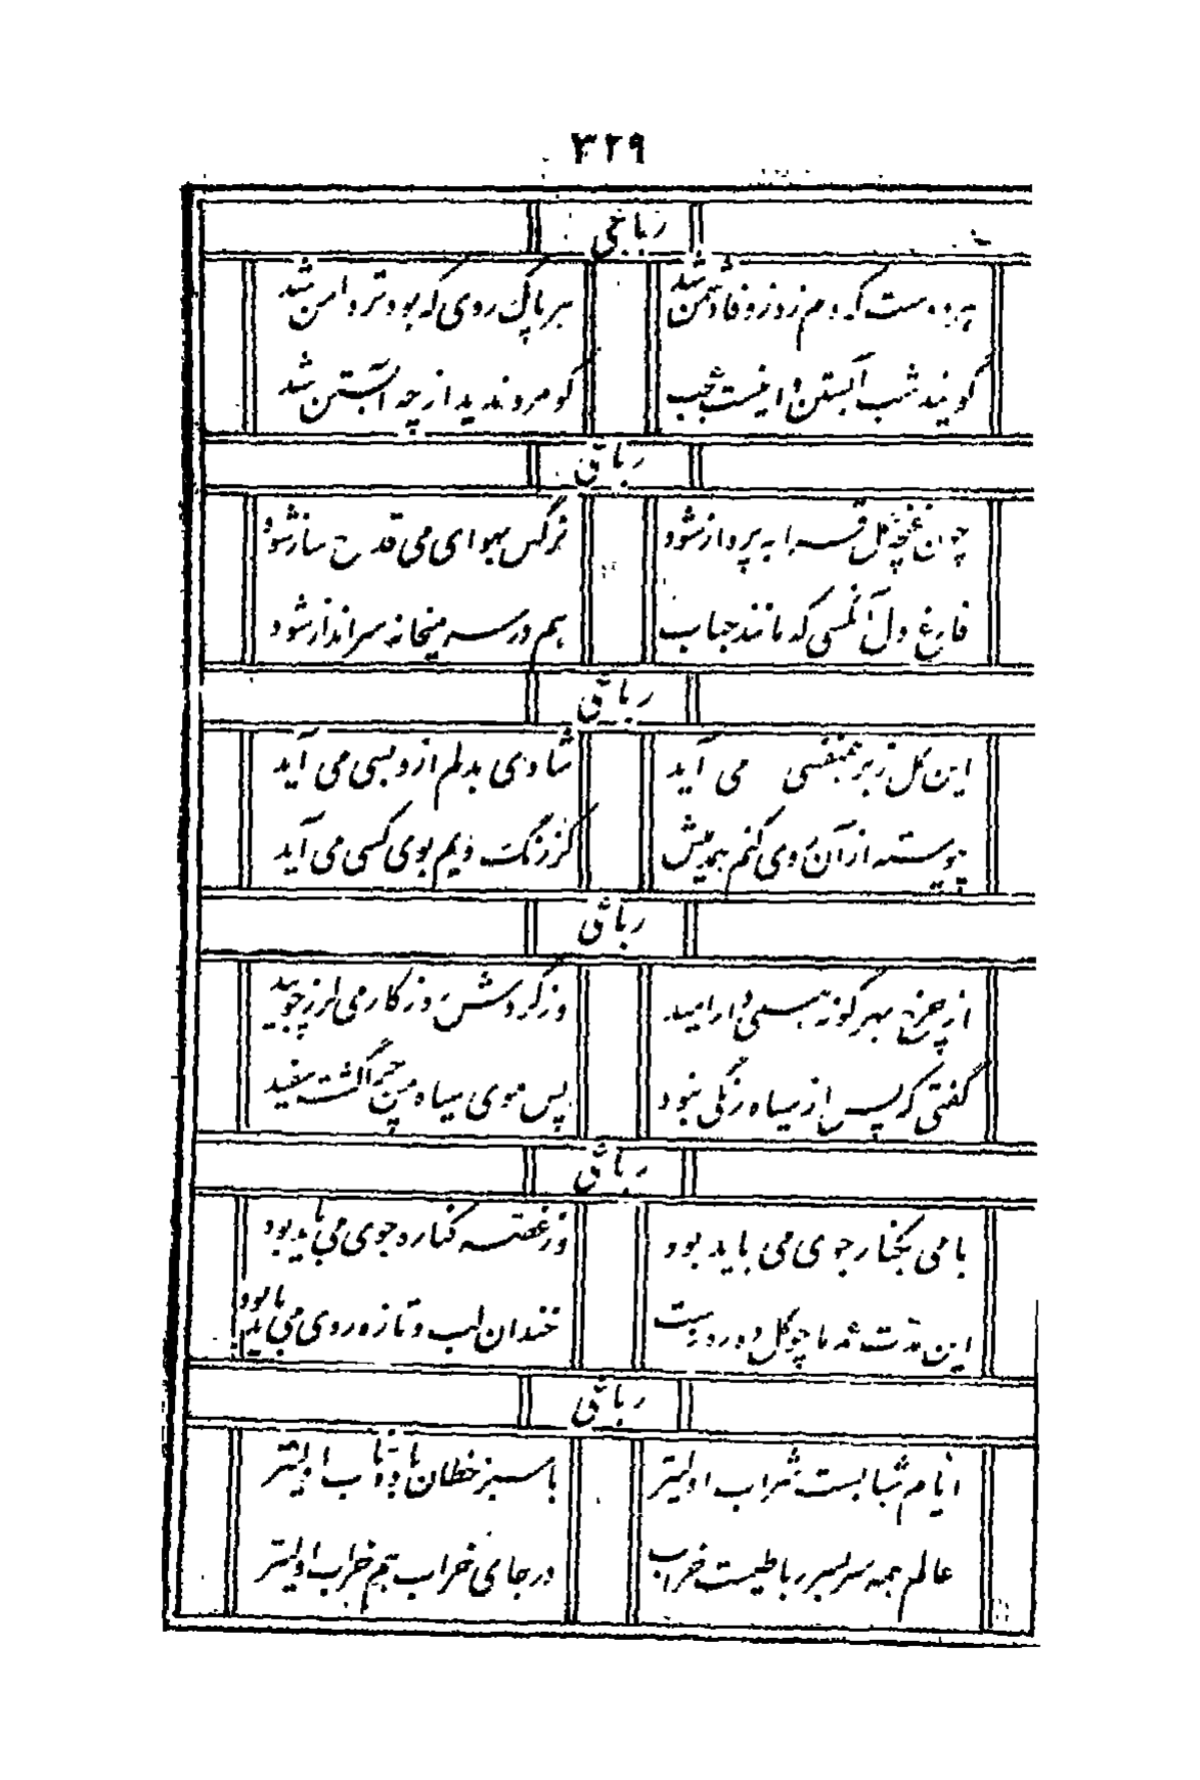 ۳۲۹
رباعی
هر دوست که دم زد ز وفا دشمن شد
هر پاک روی که بود تردامن شد
گویند شب آبستن و اینست عجب
کو مرد ندید از چه آبستن شد
رباعی
چون غنچه گل قرابه پرداز شود
نرگس بهوای می قدح ساز شود
فارغ دل آنکسی که مانند حباب
هم در سر میخانه سرانداز شود
رباعی
این گل ز بر همنفسی می آید
شادی بدلم ازو بسی می آید
پیوسته از آن روی کنم همدمیش
کز رنگ ویم بوی کسی می آید
رباعی
از چرخ بهر گونه همی دار امید
وز گردش روزگار می لرز چو بید
گفتی که پس از سیاه رنگی نبود
پس موی سیاه من چرا گشت سفید
رباعی
با می بکنار جوی می باید بود
وز غصه کناره جوی می باید بود
این مدت عمر ما چو گل ده روزست
خندان لب و تازه روی می باید بود
رباعی
ایام شبابست شراب اولیتر
با سبز خطان بادۀ ناب اولیتر
عالم همه سر بسر رباطیست خراب
در جای خراب هم خراب اولیتر